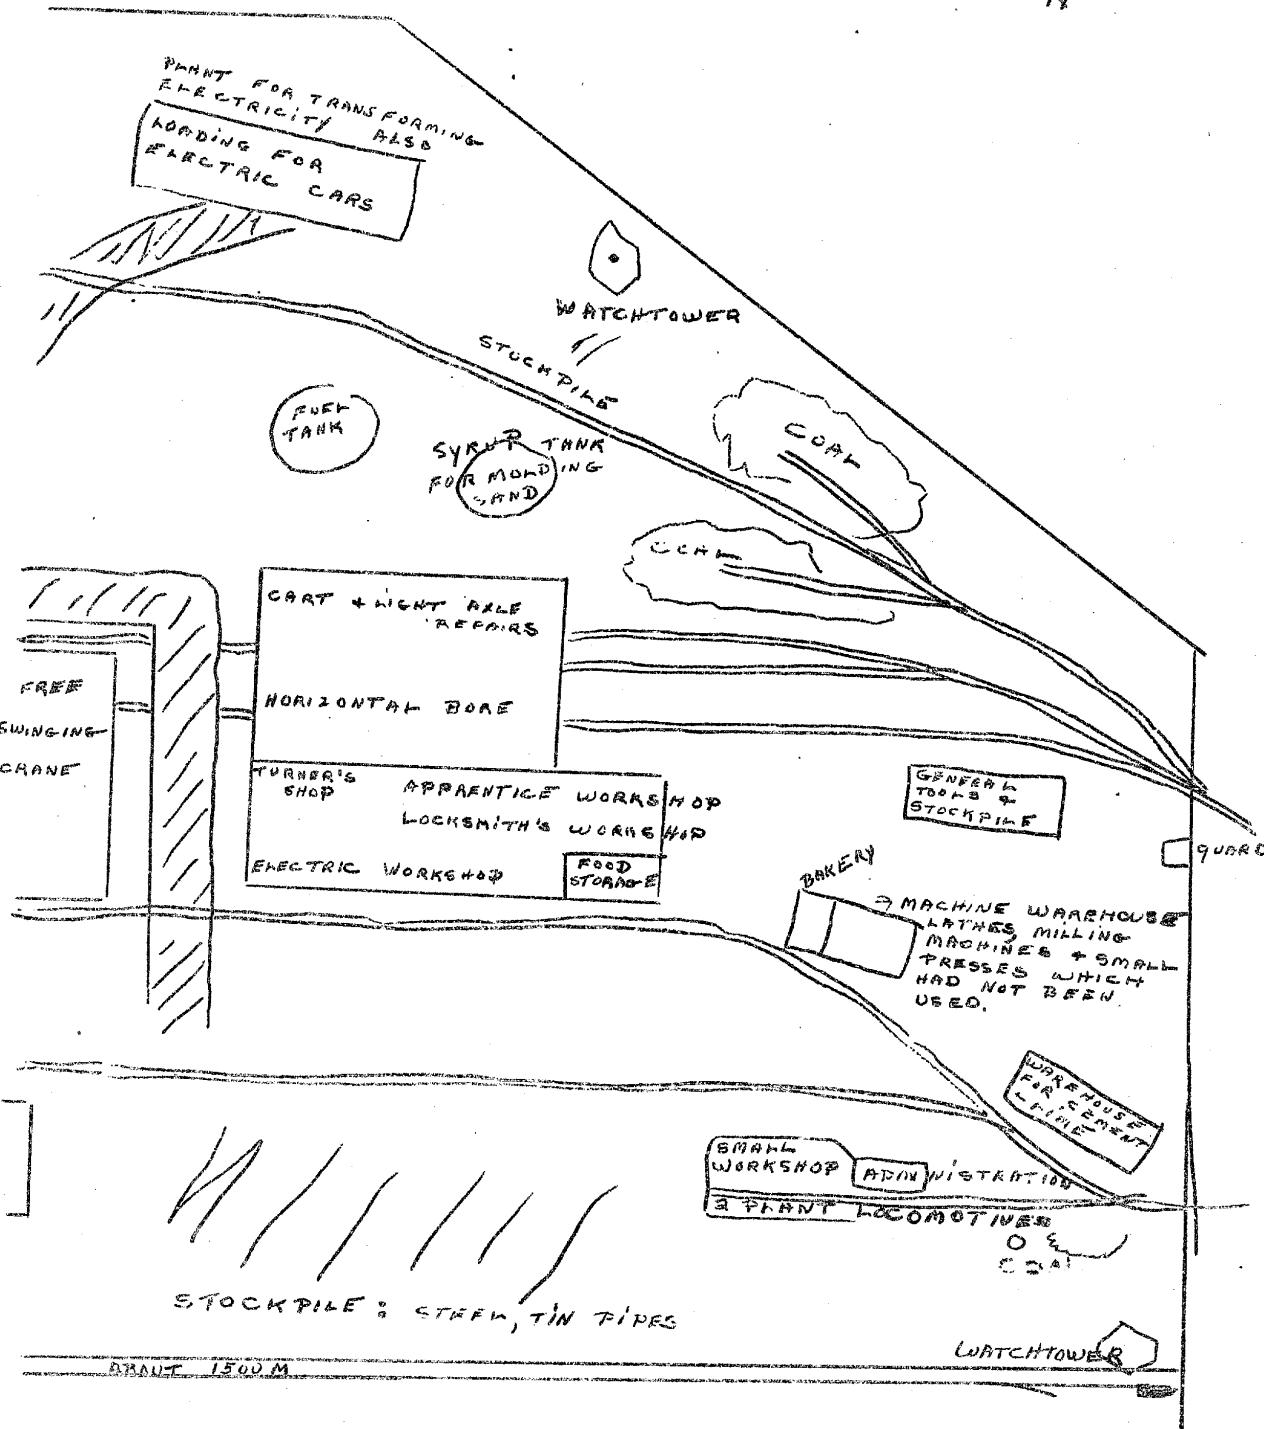 PLANT FOR TRANSFORMING
ELECTRICITY ALSO
LOADING FOR
ELECTRIC CARS
WATCHTOWER
STOCKPILE
FUEL
TANK
SYRUP TANK
FOR MOLDING
SAND
COAL
COAL
CART + LIGHT AXLE
REPAIRS
FREE
SWINGING
CRANE
HORIZONTAL BORE
TURNER'S
SHOP
APPRENTICE WORKSHOP
LOCKSMITH'S WORKSHOP
ELECTRIC WORKSHOP
FOOD
STORAGE
GENERAL
TOOLS &
STOCKPILE
GUARD
BAKERY
→ MACHINE WAREHOUSE
LATHES, MILLING
MACHINES + SMALL
PRESSES WHICH
HAD NOT BEEN
USED.
WAREHOUSE
FOR CEMENT
LIME
SMALL
WORKSHOP
ADMINISTRATION
2 PLANT LOCOMOTIVES
COAL
STOCKPILE: STEEL, TIN PIPES
WATCHTOWER
ABOUT 1500 M